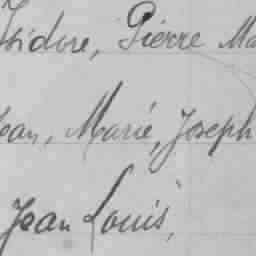 Isidore, Pierre Ma
Jean, Marie, Joseph
Jean Louis,